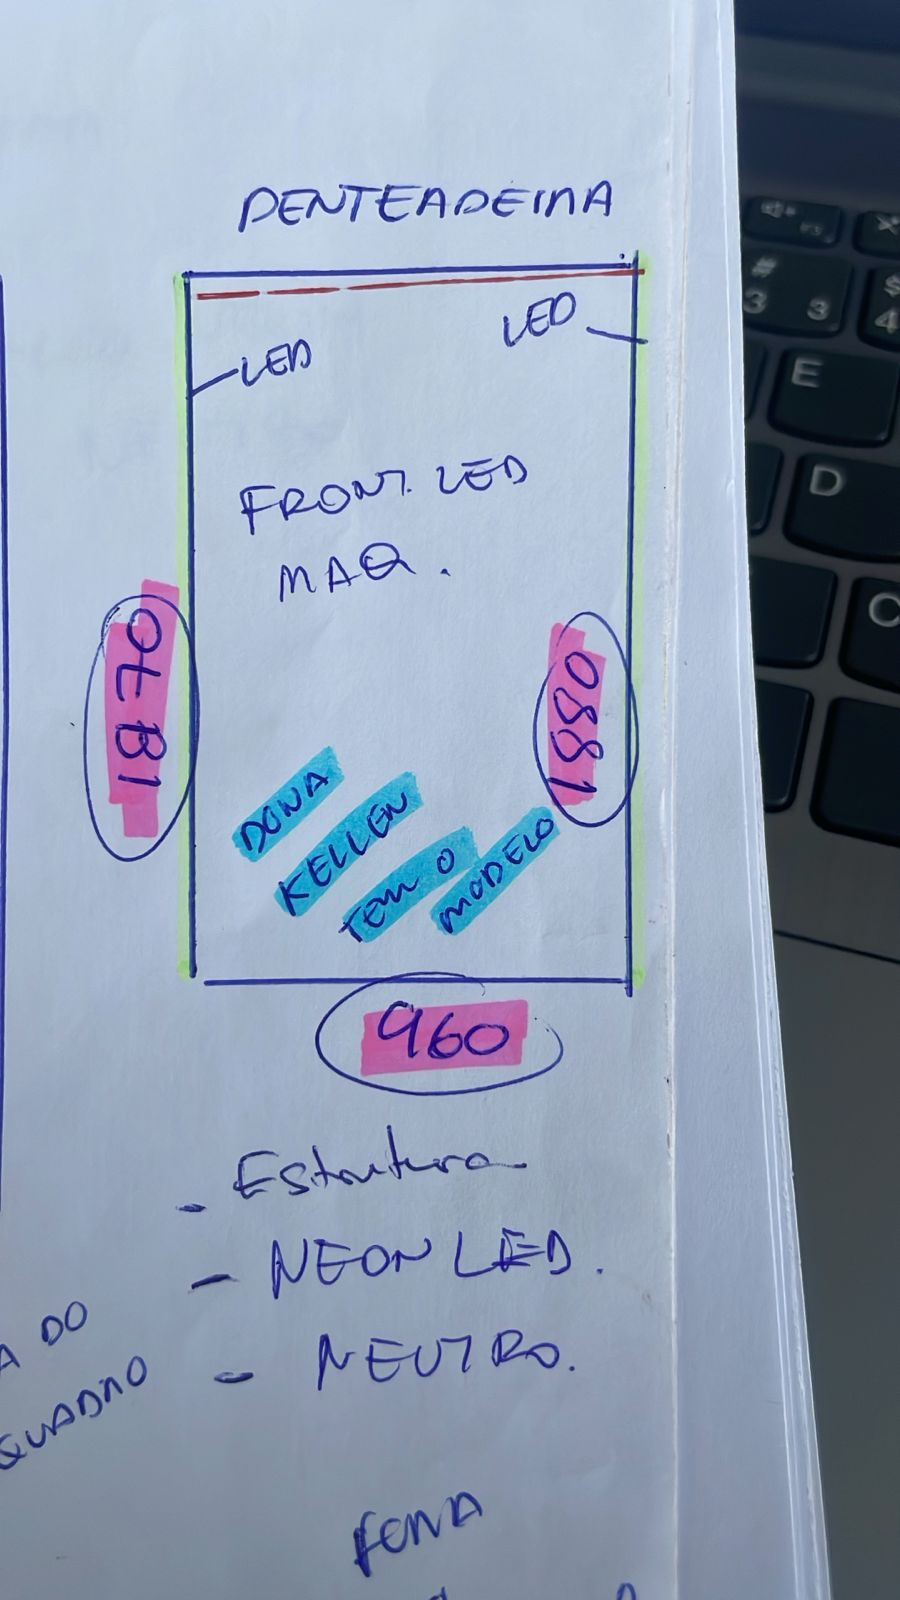 PENTEADEIRA
LED
LED
FRONT. LED
MAQ.
1870
1880
DONA
KELLEN
TEM O
MODELO
960
- Estrutura
- NEON LED.
- NEUTRO.
A DO
QUADRO
FORA
# 3 3
$ 4
E
D
C